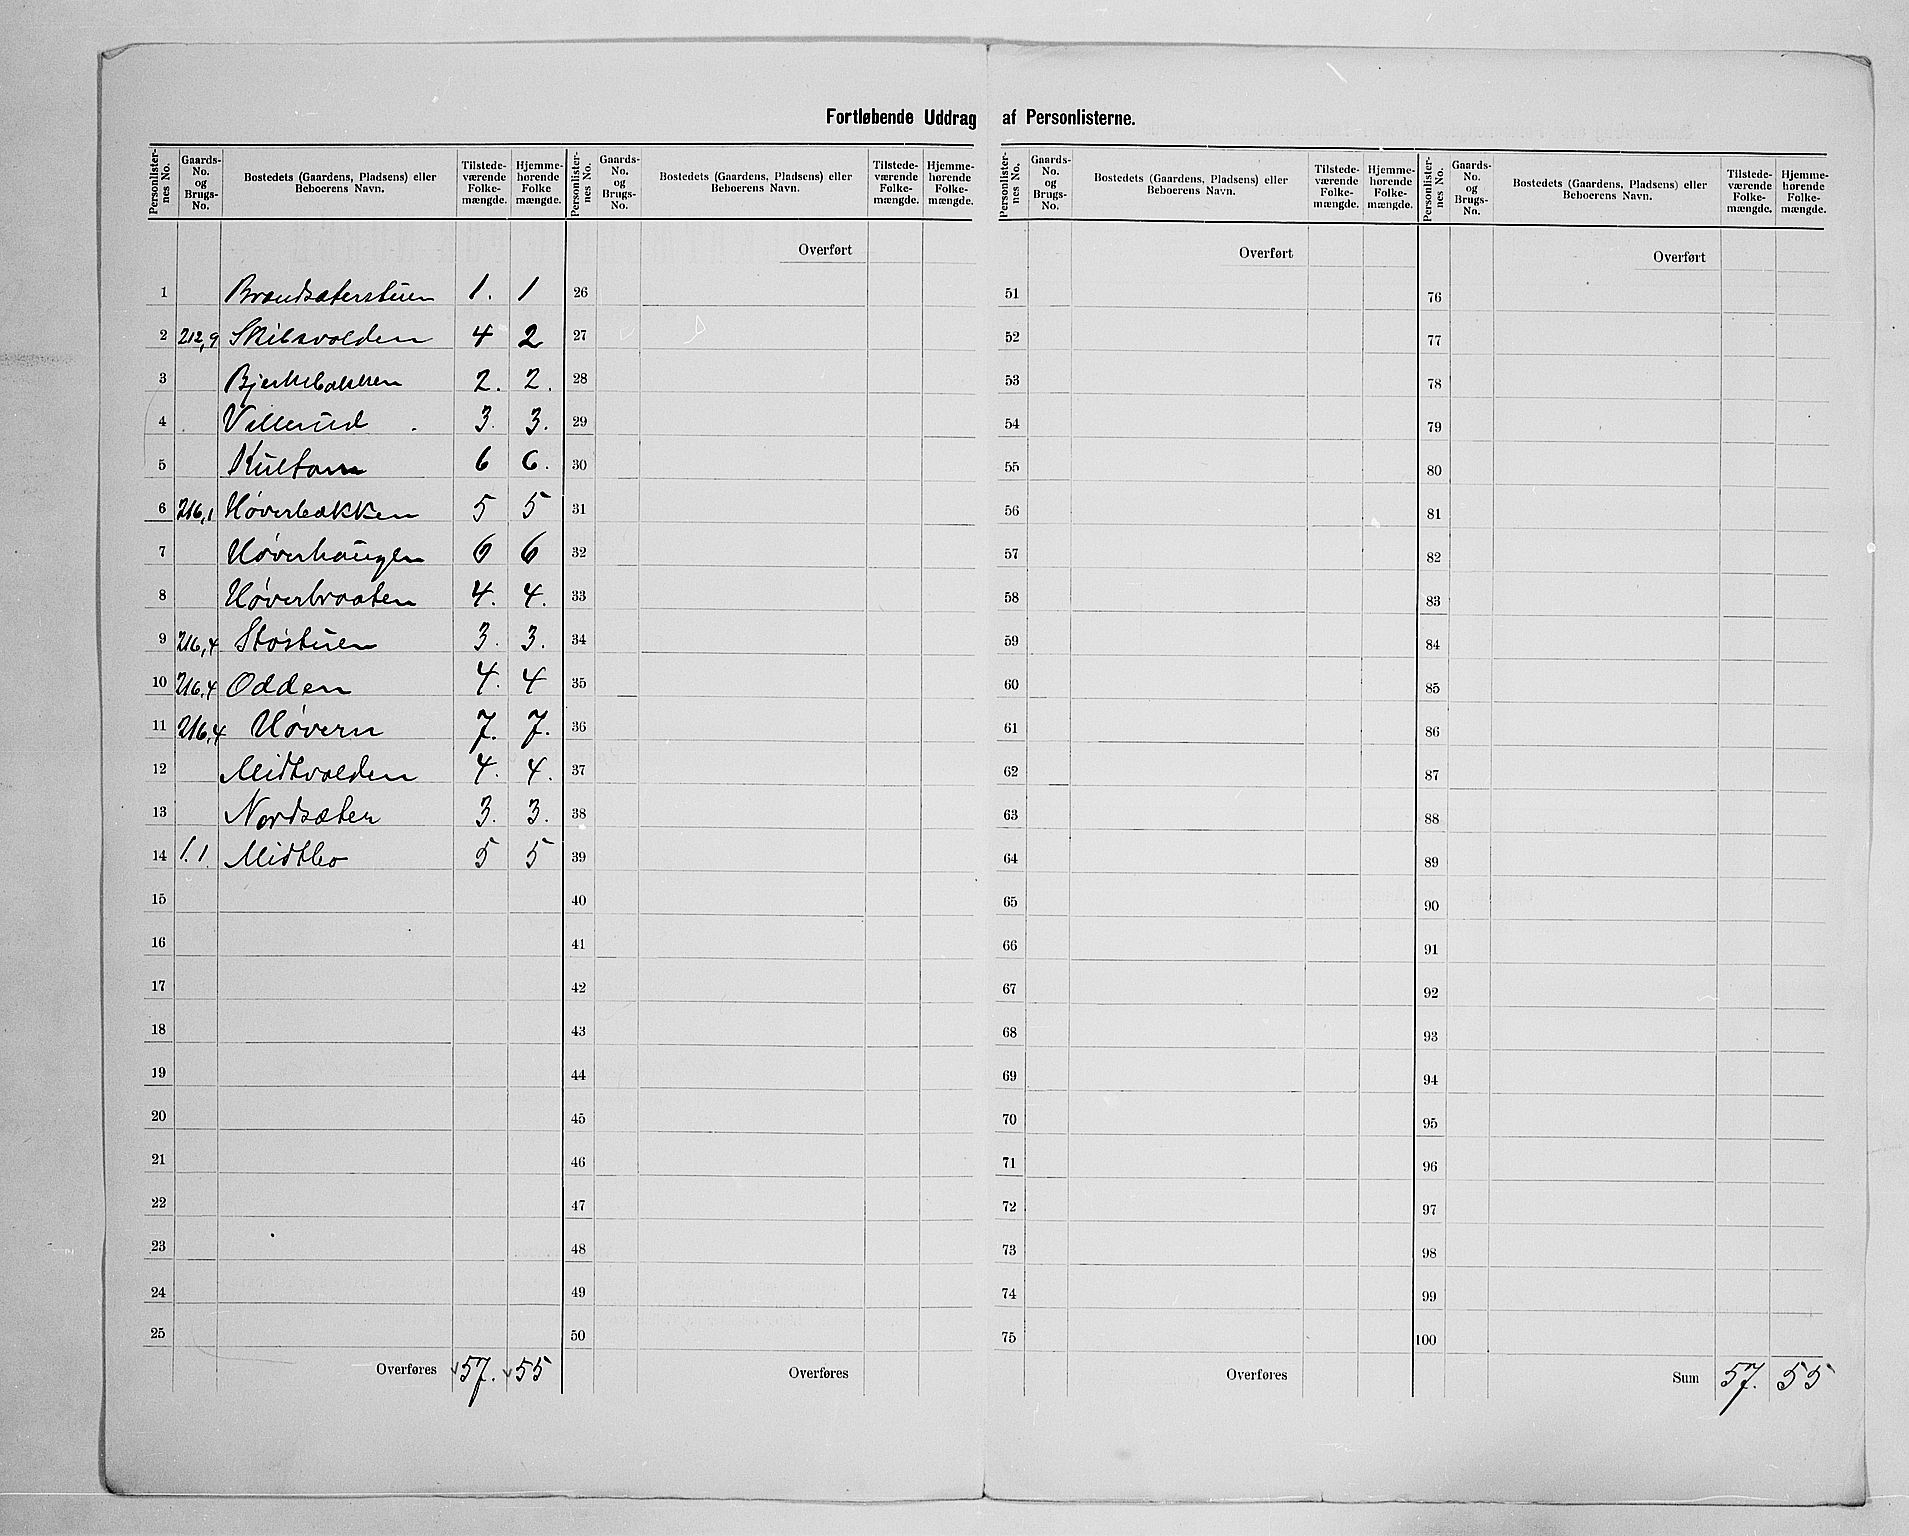 Fortløbende Uddrag af Personlisterne.
Personlisternes No. Gaards-No. og Brugs-No. Bostedets (Gaardens, Pladsens) eller Beboerens Navn. Tilstedeværende Folkemængde. Hjemmehørende Folkemængde.
Personlisternes No. Gaards-No. og Brugs-No. Bostedets (Gaardens, Pladsens) eller Beboerens Navn. Tilstedeværende Folkemængde. Hjemmehørende Folkemængde.
Personlisternes No. Gaards-No. og Brugs-No. Bostedets (Gaardens, Pladsens) eller Beboerens Navn. Tilstedeværende Folkemængde. Hjemmehørende Folkemængde.
Personlisternes No. Gaards-No. og Brugs-No. Bostedets (Gaardens, Pladsens) eller Beboerens Navn. Tilstedeværende Folkemængde. Hjemmehørende Folkemængde.
Overført Overført Overført
1 Brændsæterstuen 1. 1 26 51 76
2 212,9 Skibsvolden 4 2 27 52 77
3 Bjerkebakken 2. 2. 28 53 78
4 Villerud 3. 3. 29 54 79
5 6 6. 30 55 80
6 216,1 Høverbakken 5 5 31 56 81
7 Høverhaugen 6 6 32 57 82
8 Høverbraaten 4. 4. 33 58 83
9 216,4 Støstuen 3. 3. 34 59 84
10 216,4 Odden 4. 4 35 60 85
11 216,4 Høvern 7. 7. 36 61 86
12 Midtvolden 4. 4. 37 62 87
13 Nordsæter 3. 3. 38 63 88
14 1.1. Midtbo 5 5 39 64 89
15 40 65 90
16 41 66 91
17 42 67 92
18 43 68 93
19 44 69 94
20 45 70 95
21 46 71 96
22 47 72 97
23 48 73 98
24 49 74 99
25 50 75 100
Overføres 57. 55 Overføres Overføres Sum 57. 55